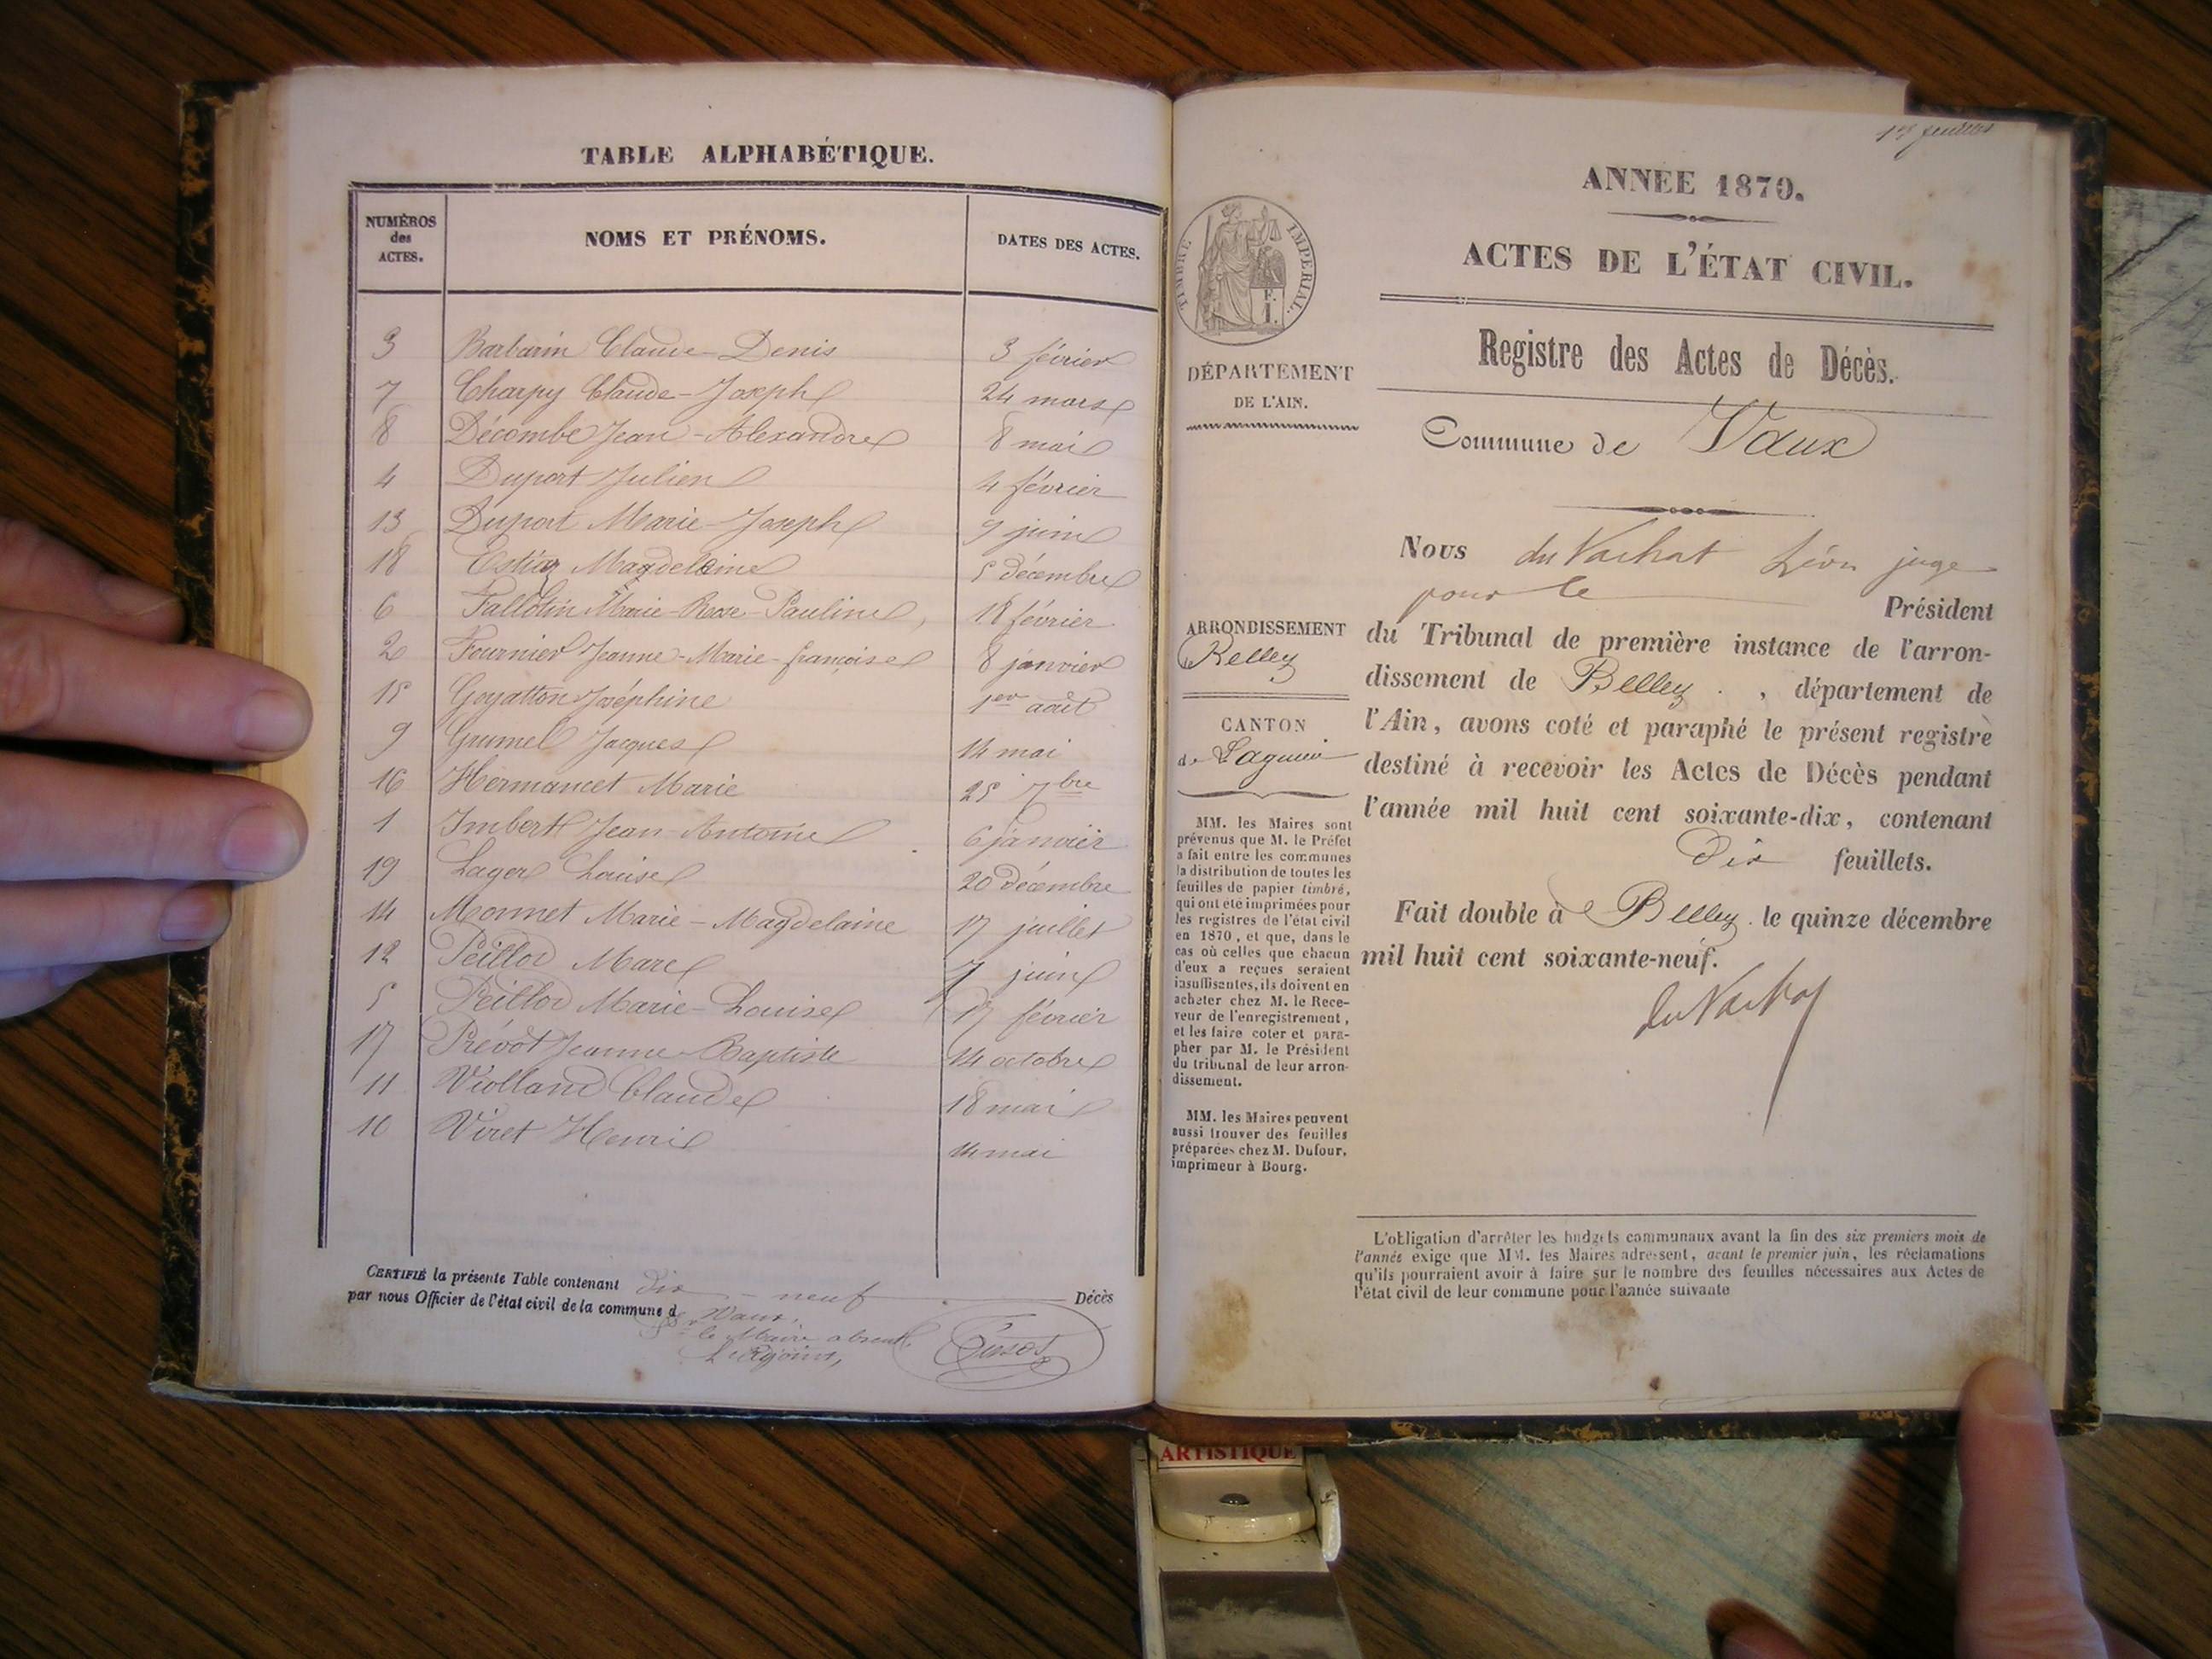 TABLE ALPHABÉTIQUE.
NUMÉROS
des
ACTES.
NOMS ET PRÉNOMS.
DATES DES ACTES.
3 Barbarin Claude-Denis 3 février
7 Charpy Claude-Joseph 24 mars
8 Décombe Jean-Alexandre 8 mai
4 Duport Julien 4 février
13 Duport Marie-Joseph 9 juin
18 Magdelaine 5 décembre
6 Fallotin Marie-Rose-Pauline, 18 février
2 Fournier Jeanne-Marie-françoise 8 janvier
15 Goyatton Joséphine 1er août
9 Grumel Jacques 14 mai
16 Hermancet Marie 25 7bre
1 Imbert Jean-Antoine 6 janvier
19 Lager Louise 20 décembre
14 Monnet Marie-Magdelaine 17 juillet
12 Peillod Marc 7 juin
5 Peillod Marie-Louise 17 février
17 Prévot Jeanne-Baptiste 14 octobre
11 Violland Claude 18 mai
10 Viret Henri 14 mai
CERTIFIÉ la présente Table contenant dix-neuf Décès
par nous Officier de l'état civil de la commune de Vaux.
Pr le Maire absent,
L'adjoint,
1er feuillet
ANNÉE 1870.
ACTES DE L'ÉTAT CIVIL.
TIMBRE IMPERIAL.
F.
1.
DÉPARTEMENT
DE L'AIN.
Registre des Actes de Décès.
Commune de Vaux
Nous du Vachat Léon juge
pour le Président
du Tribunal de première instance de l'arron-
dissement de Belley. , département de
l'Ain, avons coté et paraphé le présent registre
destiné à recevoir les Actes de Décès pendant
l'année mil huit cent soixante-dix, contenant
Dix feuillets.
Fait double à Belley. le quinze décembre
mil huit cent soixante-neuf.
du Vachat
ARRONDISSEMENT
de Belley
CANTON
de Lagnieu
MM. les Maires sont
prévenus que M. le Préfet
a fait entre les communes
la distribution de toutes les
feuilles de papier timbré,
qui ont été imprimées pour
les registres de l'état civil
en 1870, et que, dans le
cas où celles que chacun
d'eux a reçues seraient
insuffisantes, ils doivent en
acheter chez M. le Rece-
veur de l'enregistrement,
et les faire coter et para-
pher par M. le Président
du tribunal de leur arron-
dissement.
MM. les Maires peuvent
aussi trouver des feuilles
préparées chez M. Dufour,
imprimeur à Bourg.
L'obligation d'arrêter les budgets communaux avant la fin des six premiers mois de
l'année exige que MM. les Maires adressent, avant le premier juin, les réclamations
qu'ils pourraient avoir à faire sur le nombre des feuilles nécessaires aux Actes de
l'état civil de leur commune pour l'année suivante
ARTISTIQUE